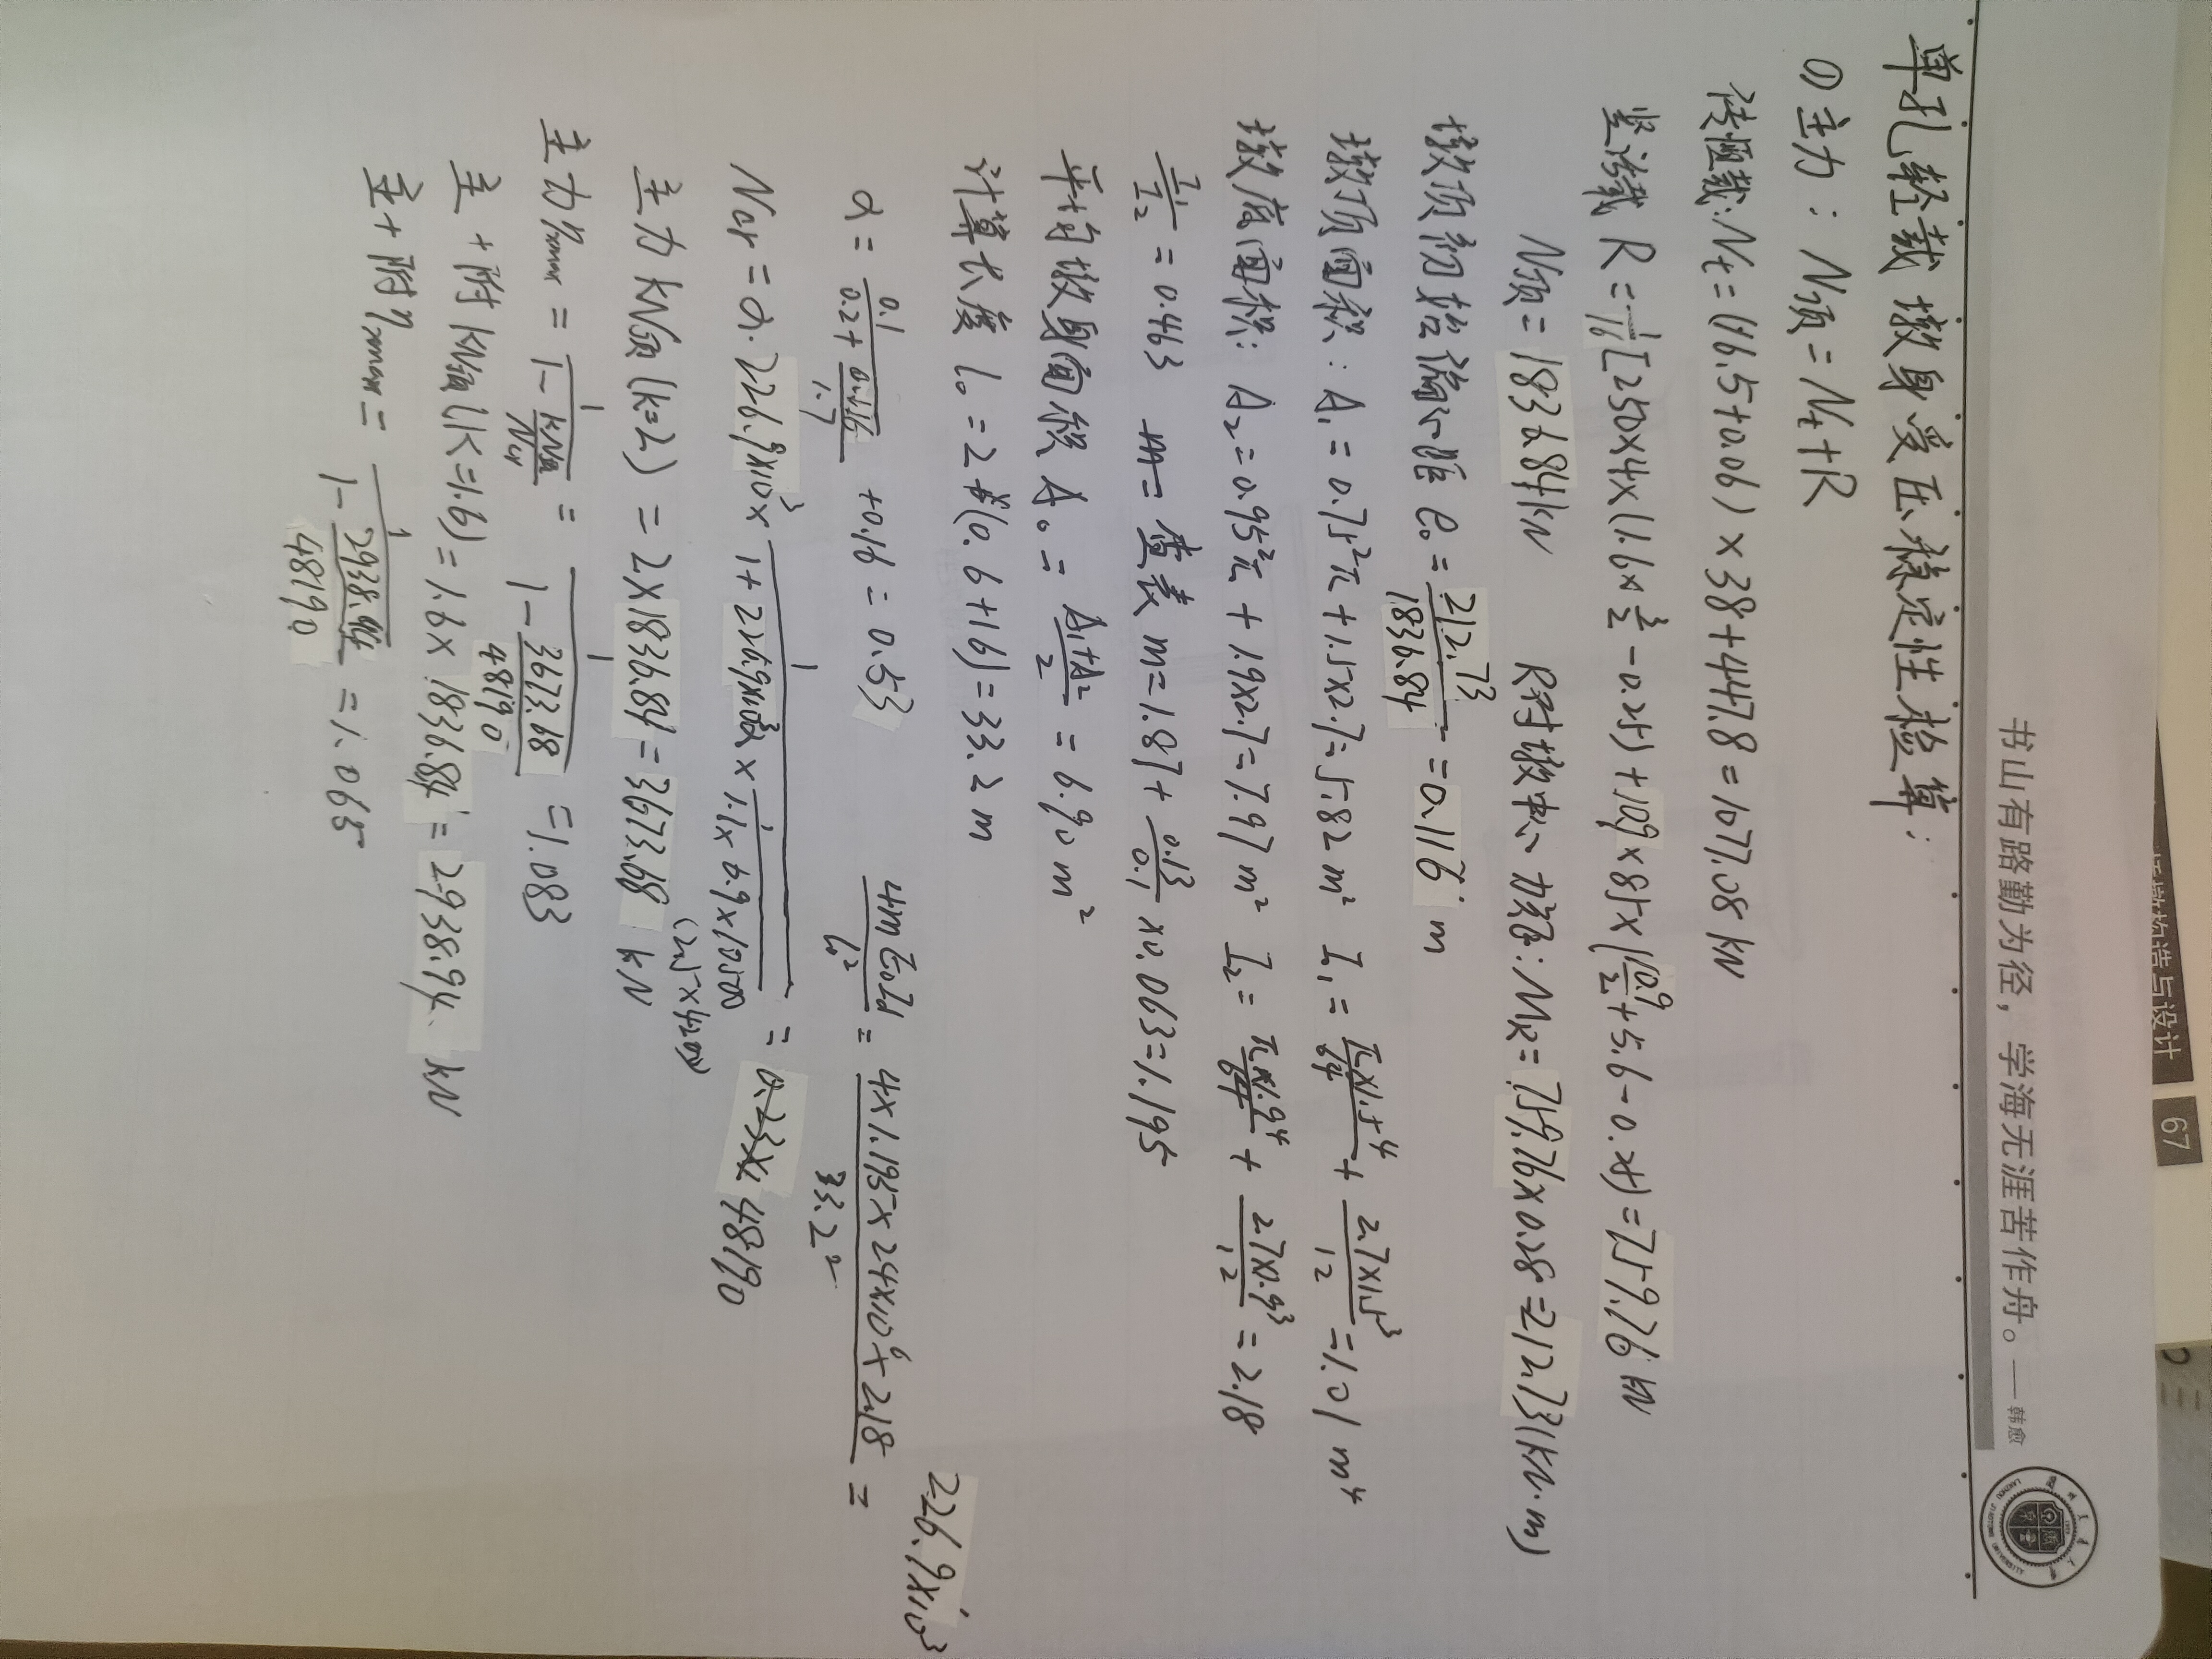 桥墩构造与设计 67
书山有路勤为径，学海无涯苦作舟。——韩愈
LANZHOU JIAOTONG UNIVERSITY
单孔轻载墩身受压稳定性检算：
① 主力： N顶 = Nt + R
传恒载: Nt = (16.5+0.06) × 38 + 447.8 = 1077.08 kN
竖活载 R = 1/16 [250×4×(1.6×3/2 - 0.25) + 10.9×85×(10.9/2 + 5.6 - 0.25) = 759.76 kN
N顶 = 1836.84 kN R对墩中心力矩: MR = 759.76×0.28 = 212.73 (kN·m)
墩顶初始偏心距 e₀ = 212.73/1836.84 = 0.116 m
墩顶面积: A₁ = 0.75²π + 1.5×2.7 = 5.82 m² I₁ = π×1.5⁴/64 + 2.7×1.5³/12 = 1.01 m⁴
墩底面积: A₂ = 0.95²π + 1.9×2.7 = 7.97 m² I₂ = π×1.9⁴/64 + 2.7×1.9³/12 = 2.18
I₁/I₂ = 0.463 m= 查表 m = 1.87 + 0.13/0.1 × 0.063 = 1.195
平均墩身面积 A₀ = (A₁+A₂)/2 = 6.90 m²
计算长度 l₀ = 2×(0.6+16) = 33.2 m
α = 0.1/(0.2 + 0.116/1.7) + 0.16 = 0.53 4mE₀Id/l₀² = 4×1.195×24×10⁶×2.18/33.2² = 226.9×10³
Ncr = α·226.9×10³ × 1/(1 + 226.9×10³α × 1/(1.1×6.9×10500)) = 0.23× 48190
(2.5×4200)
主力 kN顶 (k=2) = 2×1836.84 = 3673.68 kN
主力 ηxmax = 1/(1 - kN顶/Ncr) = 1/(1 - 3673.68/48190) = 1.083
主+附 kN顶 (K=1.6) = 1.6×1836.84 = 2938.94 kN
主+附 ηxmax = 1/(1 - 2938.94/48190) = 1.065